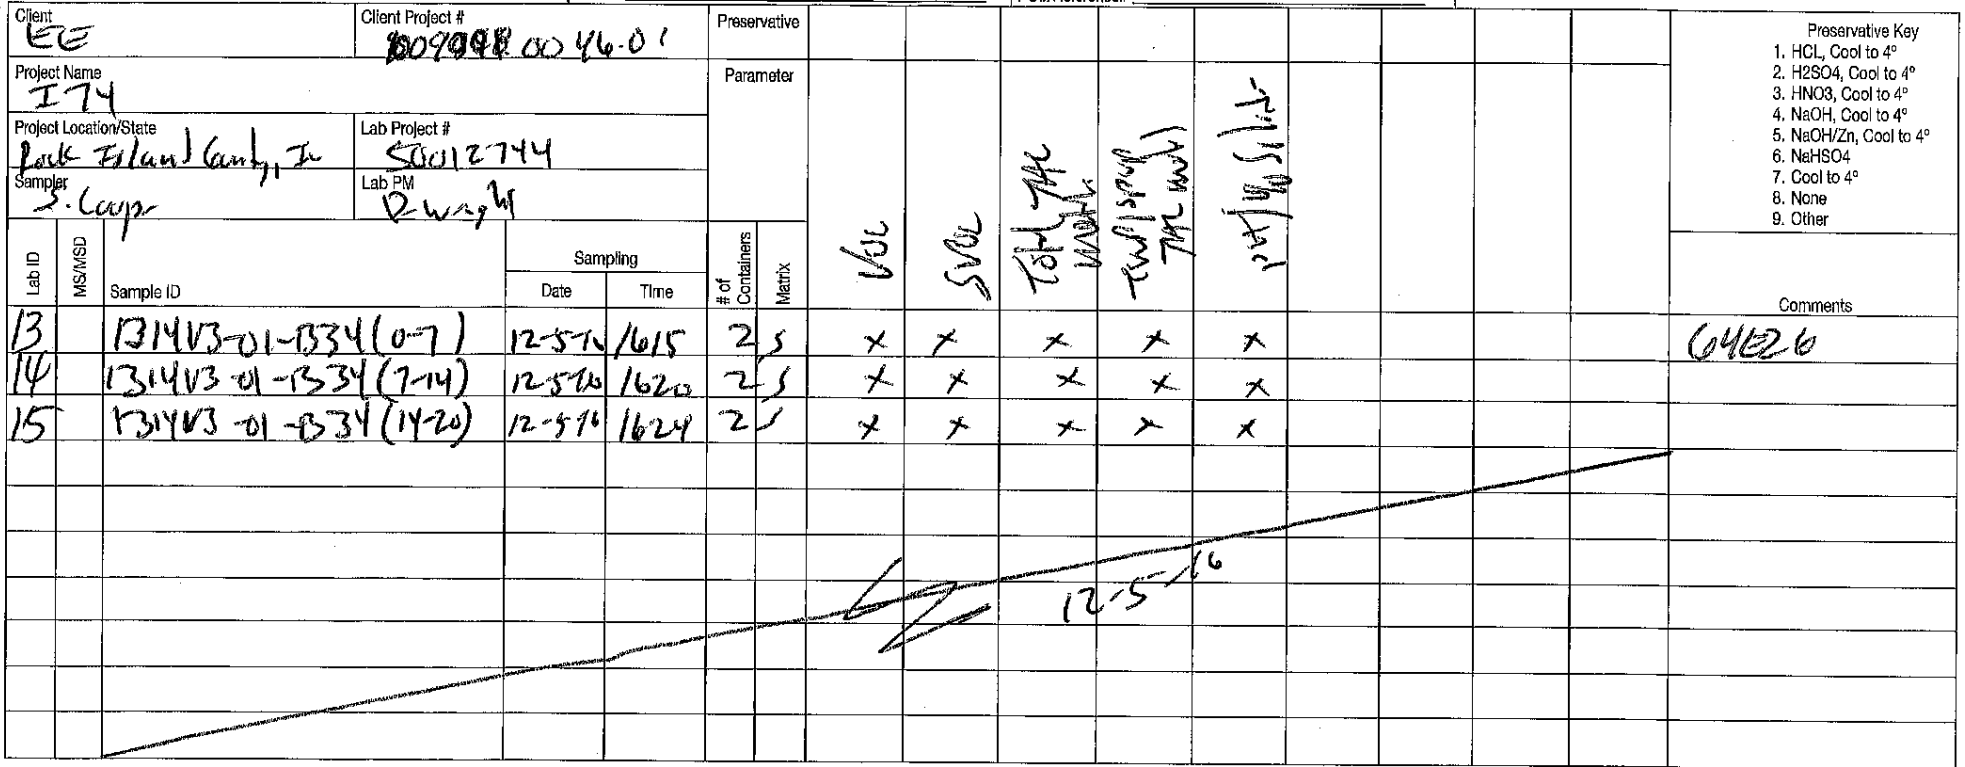 Client
EE
Client Project #
0046.01
Preservative
Project Name
I74
Parameter
Project Location/State
Rock Island County, IL
Lab Project #
50012744
Sampler
S. Coup
Lab PM
D. Wright
Preservative Key
1. HCL, Cool to 4°
2. H2SO4, Cool to 4°
3. HNO3, Cool to 4°
4. NaOH, Cool to 4°
5. NaOH/Zn, Cool to 4°
6. NaHSO4
7. Cool to 4°
8. None
9. Other
Lab ID
MS/MSD
Sample ID
Sampling
Date
Time
# of Containers
Matrix
VOC
SVOC
Total TAL
TAL
Comments
13 1314V3-01-B34 (0-7) 12-5-16 1615 2 S x x x x x 64E26
14 1314V3-01-B34 (7-14) 12-5-16 1620 2 S x x x x x
15 1314V3-01-B34 (14-20) 12-5-16 1624 2 S x x x x x
12-5-16